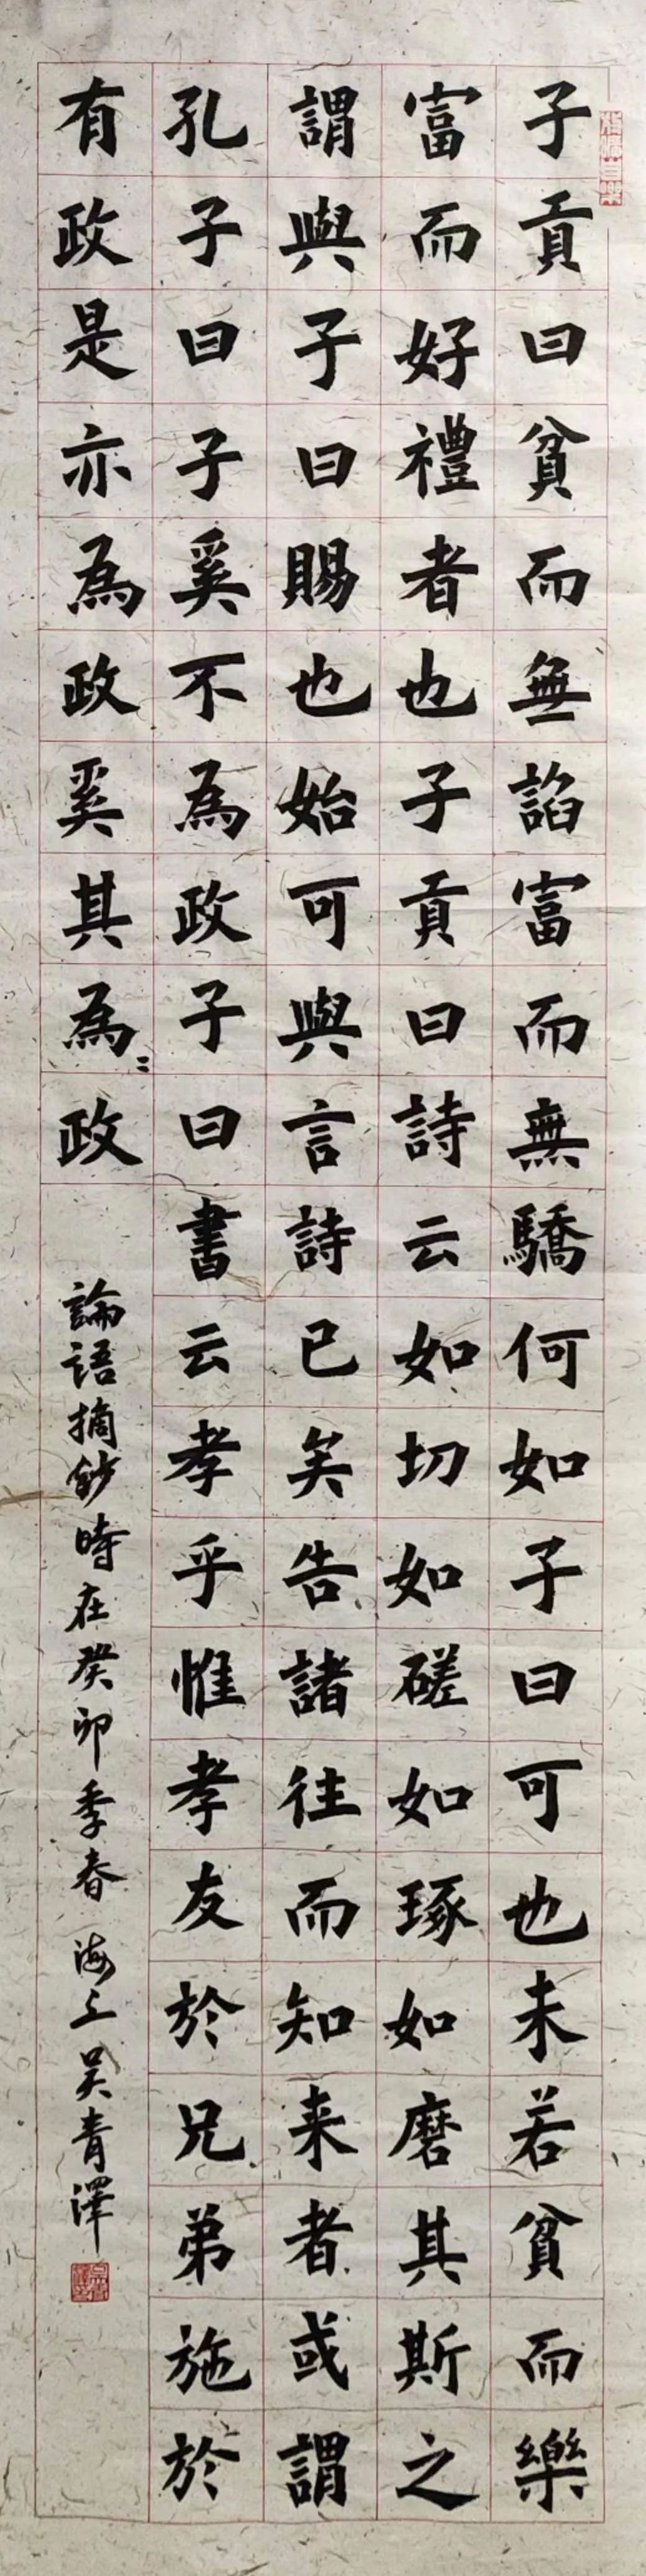 子貢曰貧而無諂富而無驕何如子曰可也未若貧而樂
富而好禮者也子貢曰詩云如切如磋如琢如磨其斯之
謂與子曰賜也始可與言詩已矣告諸往而知来者或謂
孔子曰子奚不為政子曰書云孝乎惟孝友於兄弟施於
有政是亦為政奚其為〻政
論語摘鈔時在癸卯季春海上吴青澤